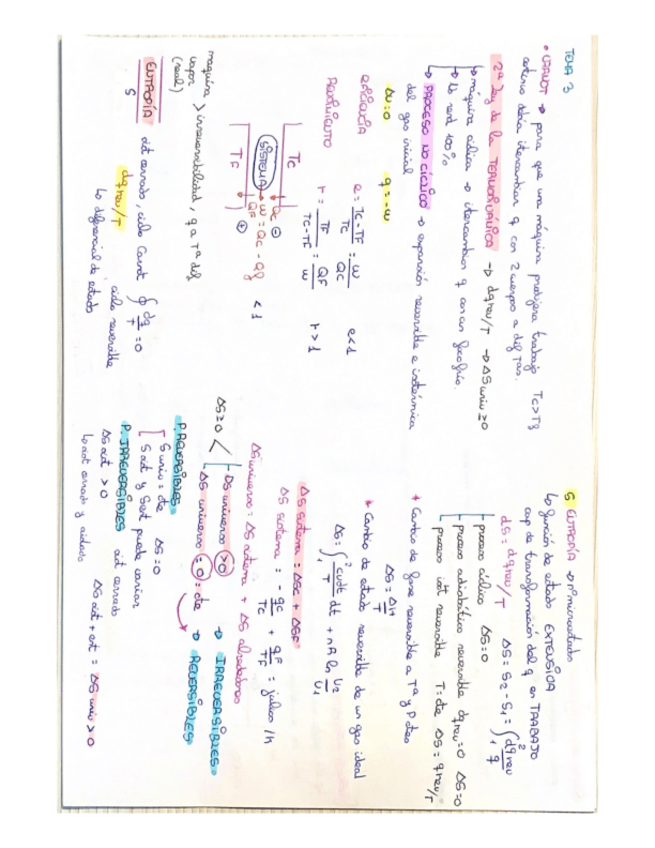 TEMA 3
• CARNOT → para que una máquina produjera trabajo Tc>Tf
externo debía intercambiar q con 2 cuerpos a dif Tas.
2ª Ley de la TERMODINÁMICA → dqrev/T → ΔSuniv ≥ 0
↳ máquina cíclica → intercambian q con un foco frío.
↳ Us rend 100%
↳ PROCESO NO CÍCLICO → expansión reversible e isotérmica
del gas inicial
ΔU=0 q=-w
EFICIENCIA e = Tc-TF/Tc = w/Qc e<1
RENDIMIENTO r = TF/Tc-TF = QF/w r>1
Tc
Qc ⊖
SISTEMA → w = Qc - Qf <1
QF ⊕
TF
máquina
vapor > irreversibilidad, q a Tª dif
(real)
ENTROPÍA sist cerrado, ciclo Carnot ∮ dq/T = 0
S ciclo reversible
dqrev/T
↳ diferencial de estado
S ENTROPÍA → nº microestados
↳ función de estado EXTENSIVA
cap de transformación del q en TRABAJO
dS = dqrev/T ΔS = S2 - S1 = ∫₁² dqrev/q
proceso cíclico ΔS=0
proceso adiabático reversible dqrev=0 ΔS=0
proceso isot reversible T=cte ΔS = qrev/T
* Cambio de fase reversible a Tª y P ctes
ΔS = ΔH/T
* Cambio de estado reversible de un gas ideal
ΔS = ∫₁² CvdT/T dt + nR ln U2/U1
ΔS sistema = ΔSc + ΔSF
ΔS sistema = - qc/Tc + qF/TF = julios/K
ΔS universo = ΔS sistema + ΔS alrededores
ΔS≥0 < ΔS universo >0 → IRREVERSIBLES
ΔS universo = 0 = cte → REVERSIBLES
P. REVERSIBLES
S univ = cte ΔS=0
S sist y Sent puede variar
P. IRREVERSIBLES sist cerrado
ΔS sist > 0 ΔS sist + ent = ΔS univ > 0
↳ sist cerrado y aislado